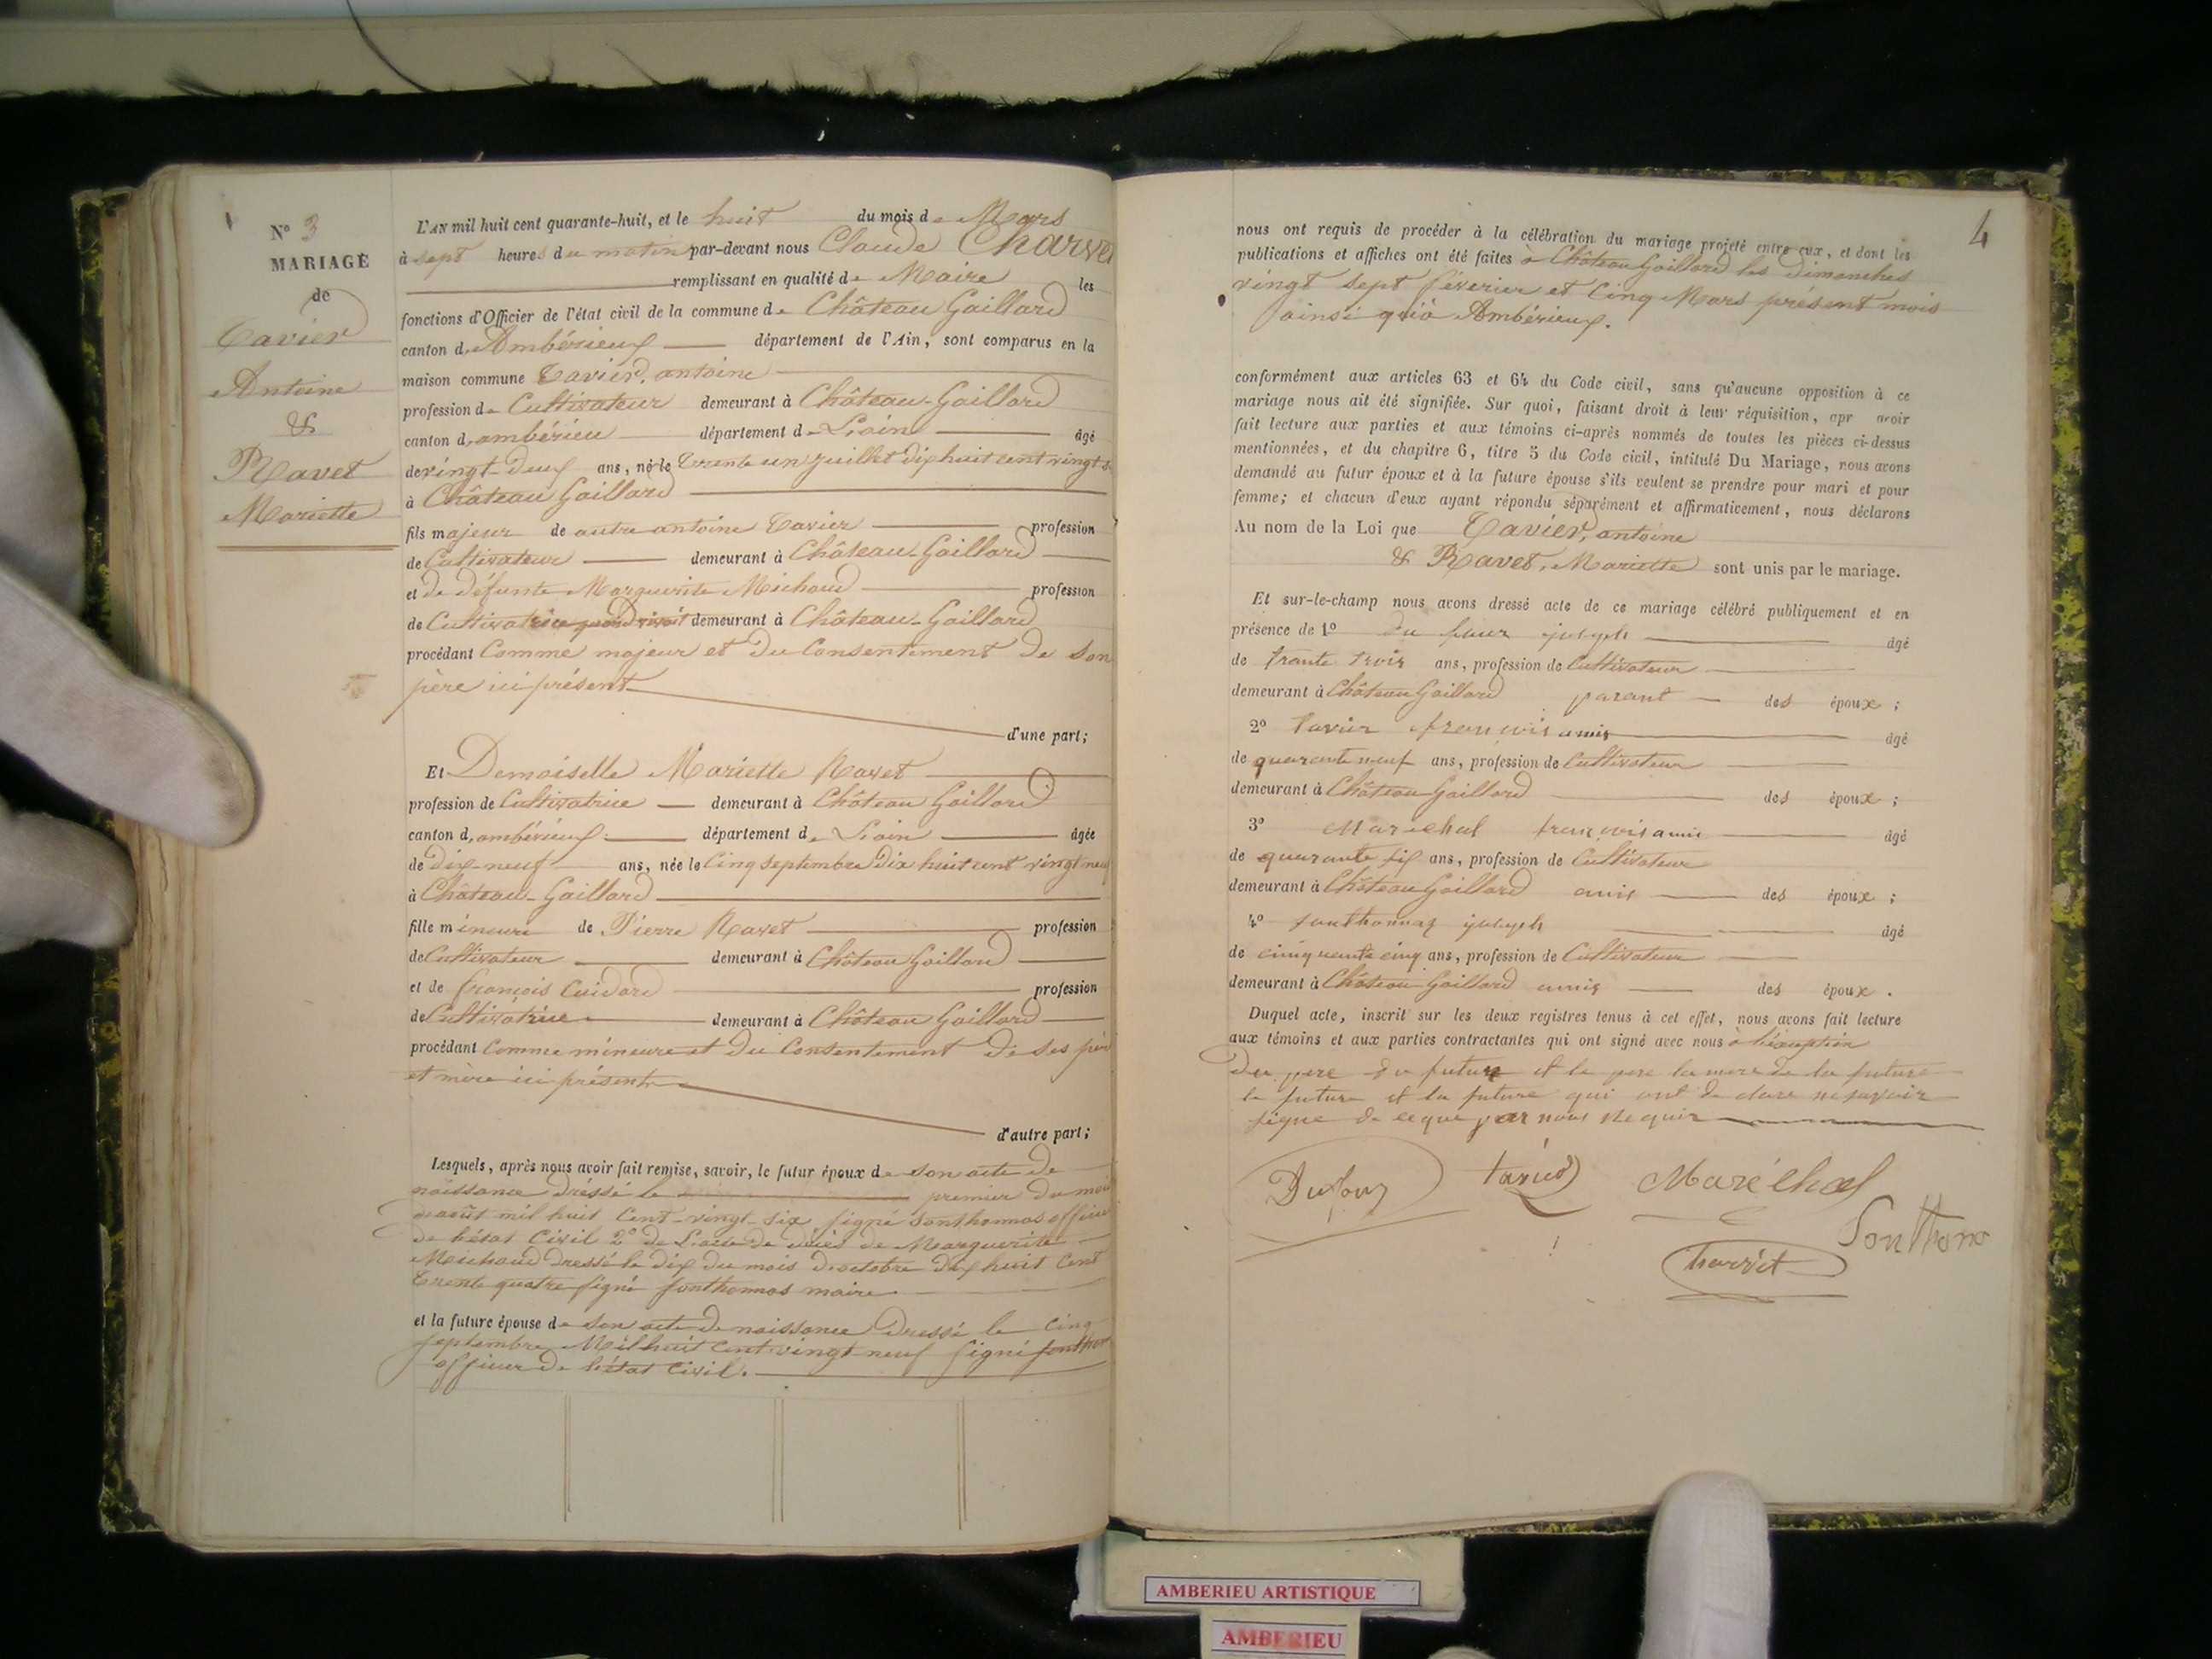 N° 3
MARIAGE
de
Tavier
Antoine
&
Ravet
Mariette
L'AN mil huit cent quarante-huit, et le huit du mois de Mars
à sept heures du matin par-devant nous Claude Charvet
remplissant en qualité de Maire les
fonctions d'Officier de l'état civil de la commune de Château Gaillard
canton d'Ambérieux département de l'Ain, sont comparus en la
maison commune Tavier, antoine
profession de Cultivateur demeurant à Château-Gaillard
canton d'ambérieu département de L'ain âgé
de vingt-deux ans, né le trente un juillet dix huit cent vingt
à Château Gaillard
fils majeur de autre antoine Tavier profession
de Cultivateur demeurant à Château-Gaillard
et de défunte Marguerite Michaud profession
de Cultivatrice quand vivait demeurant à Château-Gaillard
procédant Comme majeur et du Consentement de son
père ici présent
d'une part;
Et Demoiselle Mariette Ravet
profession de Cultivatrice demeurant à Château Gaillard
canton d'ambérieux département de L'ain âgée
de dix-neuf ans, née le Cinq septembre dix huit cent vingt neuf
à Château-Gaillard
fille mineure de Pierre Ravet profession
de Cultivateur demeurant à Château Gaillard
et de françois Cuidard profession
de Cultivatrice demeurant à Château Gaillard
procédant Comme mineure et du Consentement de ses père
et mère ici présents
d'autre part;
Lesquels, après nous avoir fait remise, savoir, le futur époux de son acte de
naissance dréssé le premier du mois
d'août mil huit Cent-vingt-six signé Sonthonnas officier
de l'état Civil 2° de L'acte de décès de Marguerite
Michaud dressé le dix du mois d'octobre dix huit Cent
trente quatre signé Sonthonnas maire
et la future épouse de son acte de naissance dressé le Cinq
septembre Mil huit Cent vingt neuf signé
officier de l'état Civil.
4
nous ont requis de procéder à la célébration du mariage projeté entre eux, et dont les
publications et affiches ont été faites à Château Gaillard les dimanches
vingt sept février et Cinq Mars présent mois
ainsi qu'à Ambérieux.
conformément aux articles 63 et 64 du Code civil, sans qu'aucune opposition à ce
mariage nous ait été signifiée. Sur quoi, faisant droit à leur réquisition, apr avoir
fait lecture aux parties et aux témoins ci-après nommés de toutes les pièces ci-dessus
mentionnées, et du chapitre 6, titre 5 du Code civil, intitulé Du Mariage, nous avons
demandé au futur époux et à la future épouse s'ils veulent se prendre pour mari et pour
femme; et chacun d'eux ayant répondu séparément et affirmativement, nous déclarons
Au nom de la Loi que Tavier, antoine
& Ravet, Mariette sont unis par le mariage.
Et sur-le-champ nous avons dressé acte de ce mariage célébré publiquement et en
présence de 1° du four joseph âgé
de trante trois ans, profession de Cultivateur
demeurant à Château Gaillard parant des époux;
2° tavier françois amis âgé
de quarante neuf ans, profession de Cultivateur
demeurant à Château Gaillard des époux;
3° Marechal françois amis âgé
de quarante six ans, profession de Cultivateur
demeurant à Château Gaillard amis des époux;
4° sonthonnaz joseph âgé
de cinquante cinq ans, profession de Cultivateur
demeurant à Château Gaillard amis des époux.
Duquel acte, inscrit sur les deux registres tenus à cet effet, nous avons fait lecture
aux témoins et aux parties contractantes qui ont signé avec nous à l'éxception
du pere du futur et le pere la mere de la future
le futur et la future qui ont de clare ne savoir
signe de ce que par nous Requis
Dufour tavier Maréchal
Sonthona
Charvet
AMBERIEU ARTISTIQUE
AMBERIEU